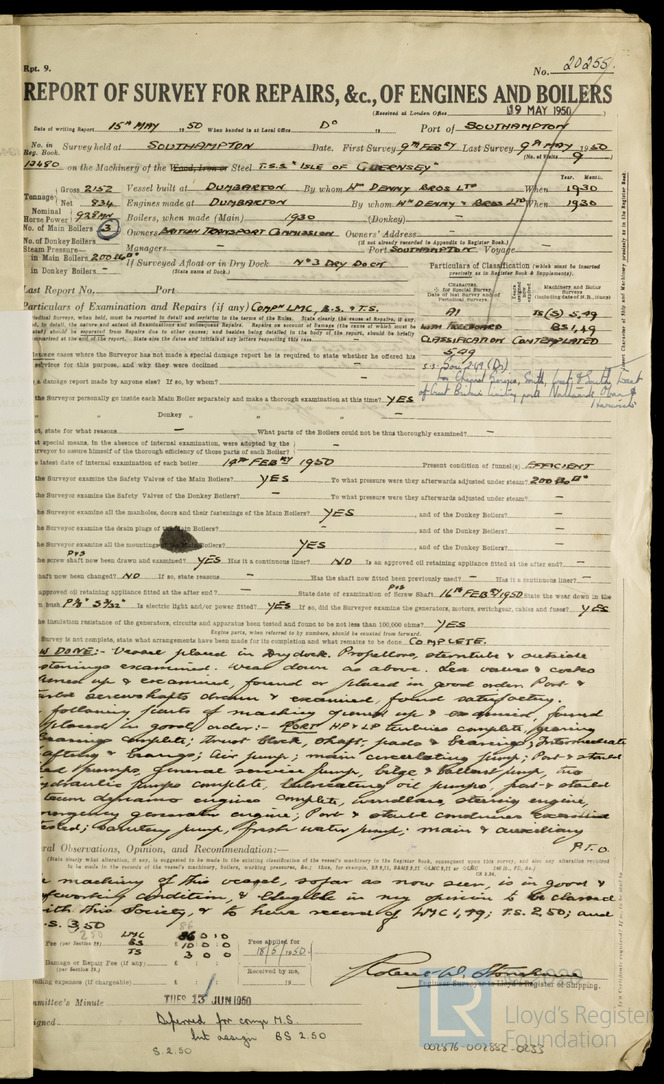 Rpt. 9.
No. 20255.
REPORT OF SURVEY FOR REPAIRS, &c., OF ENGINES AND BOILERS
(Received at London Office 19 MAY 1950)
Date of writing Report 15th MAY 1950 When handed in at Local Office Do 19 Port of SOUTHAMPTON
No. in Reg. Book. Survey held at SOUTHAMPTON Date. First Survey 9th FEBry Last Survey 9th MAY 1950
(No. of Visits 9)
12480 on the Machinery of the Wood, Iron or Steel T.S.S. "ISLE OF GUERNSEY"
Tonnage Gross 2152 Vessel built at DUMBARTON By whom Wm DENNY & BROS LTD When 1930
Net 834 Engines made at DUMBARTON By whom Wm DENNY & BROS LTD When 1930
Nominal Horse Power 928 MN Boilers, when made (Main) 1930 (Donkey) -
No. of Main Boilers 3 Owners BRITISH TRANSPORT COMMISSION Owners' Address -
(If not already recorded in Appendix to Register Book.)
No. of Donkey Boilers - Managers - Port SOUTHAMPTON Voyage -
Steam Pressure in Main Boilers 200 If Surveyed Afloat or in Dry Dock No 3 DRY DOCK
in Donkey Boilers - (State name of Dock.)
Particulars of Classification (which must be inserted precisely as in Register Book & Supplements).
Last Report No. Port
Particulars of Examination and Repairs (if any) COMPn LMC B.S. & T.S.
A1
TS(S) 5,49
WITH FREEBOARD BS 1,49
CLASSIFICATION CONTEMPLATED
5.49
Damage cases where the Surveyor has not made a special damage report he is required to state whether he offered his
services for this purpose, and why they were declined -
a damage report made by anyone else? If so, by whom? -
the Surveyor personally go inside each Main Boiler separately and make a thorough examination at this time? YES
" Donkey " " " -
not, state for what reasons - What parts of the Boilers could not be thus thoroughly examined? -
at special means, in the absence of internal examination, were adopted by the
Surveyor to assure himself of the thorough efficiency of those parts of each Boiler? -
latest date of internal examination of each boiler 14th FEBry 1950 Present condition of funnel(s) EFFICIENT
the Surveyor examine the Safety Valves of the Main Boilers? YES To what pressure were they afterwards adjusted under steam? 200
the Surveyor examine the Safety Valves of the Donkey Boilers? - To what pressure were they afterwards adjusted under steam? -
the Surveyor examine all the manholes, doors and their fastenings of the Main Boilers? YES, and of the Donkey Boilers? -
the Surveyor examine the drain plugs of the Main Boilers? -, and of the Donkey Boilers? -
the Surveyor examine all the mountings of the Main Boilers? YES, and of the Donkey Boilers? -
the screw shaft now been drawn and examined? P&S YES Has it a continuous liner? NO Is an approved oil retaining appliance fitted at the after end? -
shaft now been changed? NO If so, state reasons - Has the shaft now fitted been previously used? - Has it a continuous liner? -
approved oil retaining appliance fitted at the after end? - State date of examination of Screw Shaft P&S 16th FEBry 1950 State the wear down in the
bush Is electric light and/or power fitted? YES If so, did the Surveyor examine the generators, motors, switchgear, cables and fuses? YES
the insulation resistance of the generators, circuits and apparatus been tested and found to be not less than 100,000 ohms? YES
Engine parts, when referred to by numbers, should be counted from forward.
Survey is not complete, state what arrangements have been made for its completion and what remains to be done. COMPLETE.
W DONE:- Vessel placed in Drydock. Propellers, sterntube & outside
fastenings examined. Wear down as above. Sea valves & cocks
opened up & examined, found or placed in good order. Port &
starbd screwshafts drawn & examined, found satisfactory.
following parts of machinery opened up & examined, found
placed in good order:- PORT HP & LP turbines complete, gearing
bearings complete; thrust block, shaft, pads & bearings; Intermediate
shafting & bearings; Air pump; main circulating pump; Port & starbd
feed pumps, general service pump, bilge & ballast pump, two
hydraulic pumps complete, lubricating oil pumps, port & starbd
steam dynamo engines complete, windlass, steering engine,
emergency generator engine; Port & starbd condensers examined
tested; sanitary pump, fresh water pump; main & auxiliary
P.T.O.
General Observations, Opinion, and Recommendation:—
(State clearly what alteration, if any, is suggested to be made in the existing classification of the vessel's machinery in the Register Book, consequent upon this survey, and also any alteration required
to be made in the records of the vessel's machinery, boilers, working pressures, &c.;
machinery of this vessel, so far as now seen, is in good &
working condition, & eligible in my opinion to be classed
with this Society, & to have record of LMC 1,49; T.S. 2,50; and
B.S. 3,50
LMC 86 0 0
Fee (per Section 29) BS £ 10 0 0
TS 3 0 0
Fees applied for
18/5/1950
Damage or Repair Fee (if any) £ : :
(per Section 29.)
Received by me,
Travelling expenses (if chargeable) £ : : 19
Engineer Surveyor to Lloyd's Register of Shipping.
Committee's Minute TUES 13 JUN 1950
Assigned Deferred for comp M.S.
but assign BS 2.50
S. 2.50
LR
Lloyd's Register
Foundation
002876-002882-0233